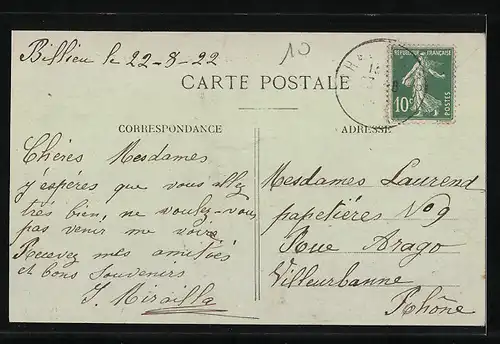 Billieu le 22-8-22
10
CARTE POSTALE
RÉPUBLIQUE FRANÇAISE
10c
POSTES
CORRESPONDANCE
ADRESSE
Chères Mesdames
j'espéres que vous allez
très bien, ne voulez-vous
pas venir me voir
Recevez mes amitiés
et bons souvenirs
J. Mirailla
Mesdames Laurend
papetières No 9
Rue Arago
Villeurbanne
Rhône